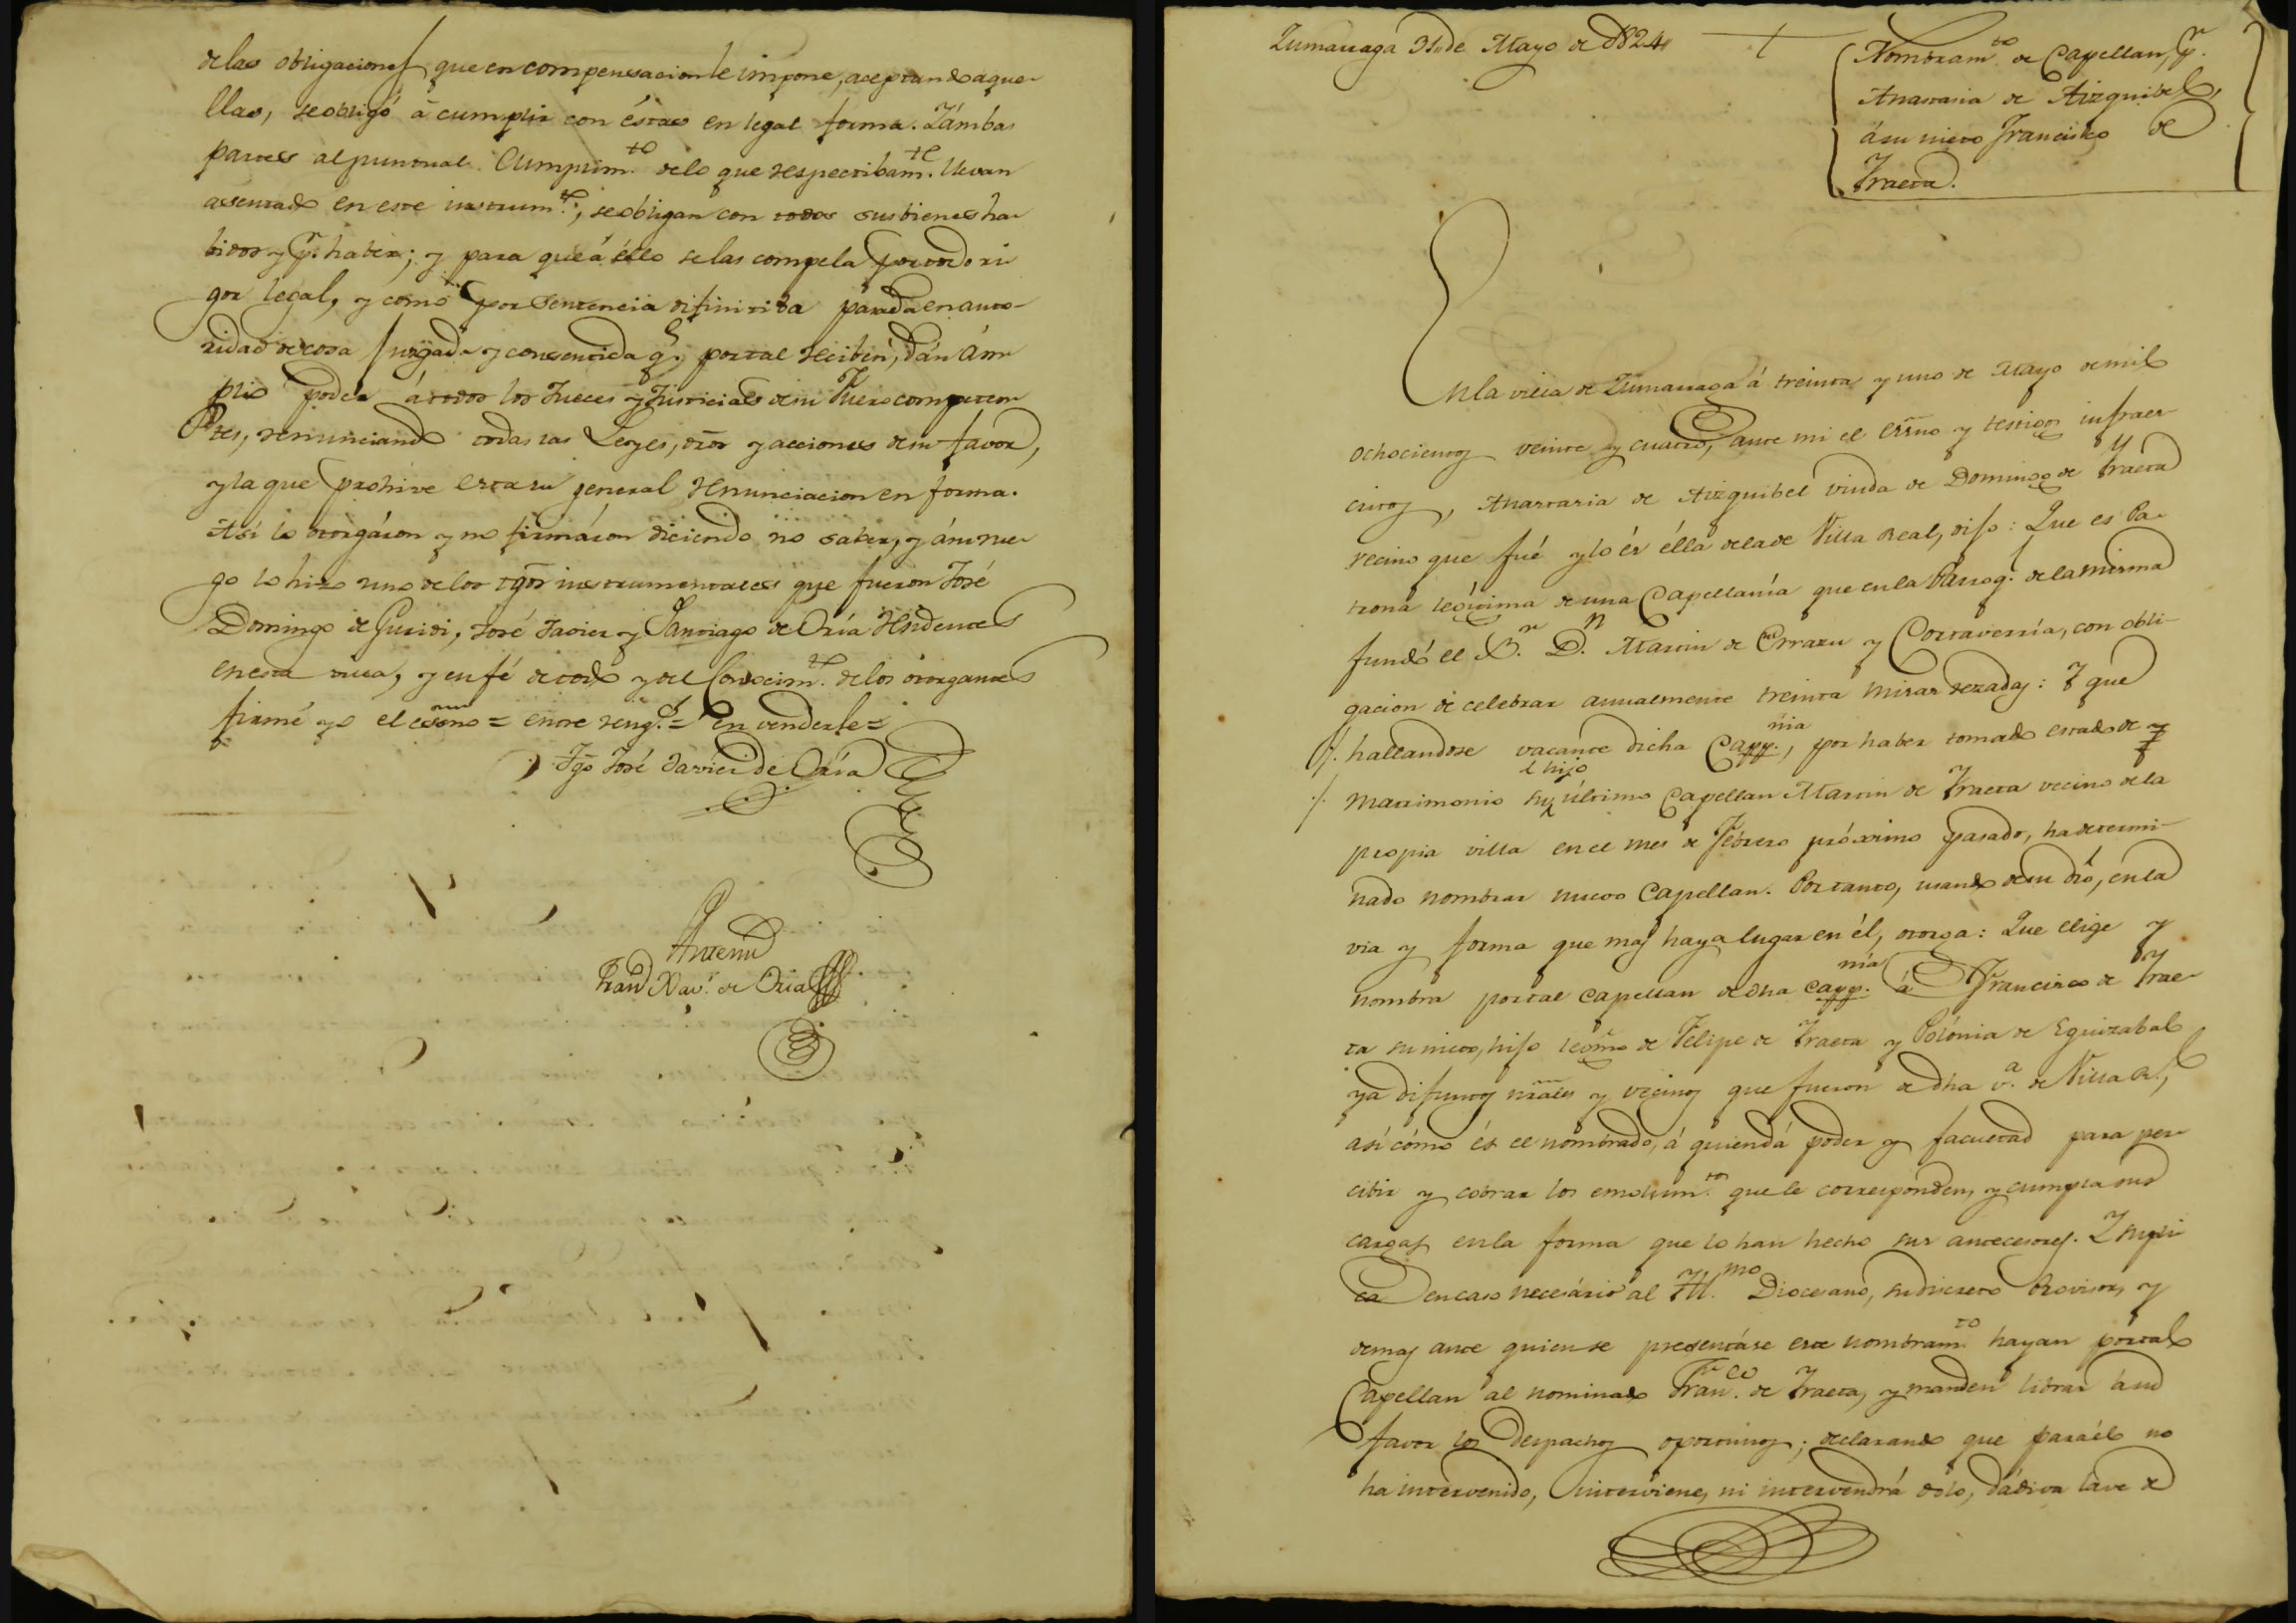 de las obligaciones que en compensacion le impone, aceptando aque-
llas, se obligó á cumplir con éstas en legal forma. Y ámbas
partes al puntual cumplim.to de lo que respectibam.te llevan
asentado en este instrum.to, se obligan con todos sus bienes ha-
bidos y p.r haber; y para que á éllo se las compela por todo ri-
gor legal, y como por sentencia difinitiba pasada en auto-
ridad de cosa juzgada y consentida q.e por tal reciben, dán ám-
plio poder á todos los Jueces y Justicias de su Fuero competen-
tes, renunciando todas las Leyes, dros y acciones de su favor,
y la que prohive esta su general renunciacion en forma.
Así lo otorgáron y no firmáron diciendo no saber, y á mi rue-
go lo hizo uno de los tgos instrumentales que fueron José
Domingo de Guridi, José Javier y Santiago de Oria residentes
en esta villa, y en fé de todo y del conocim.to de los otorgantes
firmé yo el essno = entre reng.s = en venderle =
Tgo José Javier de Oria
Antemi
Fran Xav.r de Oria
Zumarraga 31 de Mayo de 1824
Nombram.to de Capellan, p.r
Anastasia de Aizquibel,
á su nieto Francisco de
Iraeta.
En la villa de Zumarraga á treinta y uno de Mayo de mil
ochocientos veinte y cuatro, ante mi el essno y testigos infraes-
critos, Anastasia de Aizquibel viuda de Domingo de Iraeta
vecino que fué y lo és élla de la de Villa Real, dijo: Que es Pa-
trona legítima de una Capellanía que en la Parroq.l de la misma
fundó el B.r D.n Martin de Errazu y Cortaverría, con obli-
gacion de celebrar anualmente treinta misas rezadas: Y que
hallandose vacante dicha Capp.nia, por haber tomado estado de
matrimonio su el hijo último Capellan Martin de Iraeta vecino de la
propia villa en el mes de Febrero próximo pasado, ha determi-
nado nombrar nuevo Capellan. Por tanto, usando de su dro, en la
via y forma que mas haya lugar en él, otorga: Que elige y
nombra por tal capellan de dha capp.nía á Francisco de Irae-
ta su nieto, hijo legmo de Felipe de Iraeta y Polónia de Eguizabal
ya difuntos nrales y vecinos que fueron de dha v.a de Villa R.l,
así cómo és el nombrado, á quien dá poder y facultad para per-
cibir y cobrar los emolum.tos que le corresponden, y cumpla sus
cargas en la forma que lo han hecho sus antecesores. Y supli-
ca en caso necesário al Ill.mo Diocesano, su discreto Provisor, y
demas ante quien se presentáse este nombram.to hayan por tal
Capellan al nominado Fran.co de Iraeta, y manden librar á su
favor los Despachos oportunos; declarando que para él no
ha intervenido, interviene, ni intervendrá dolo, dádiva